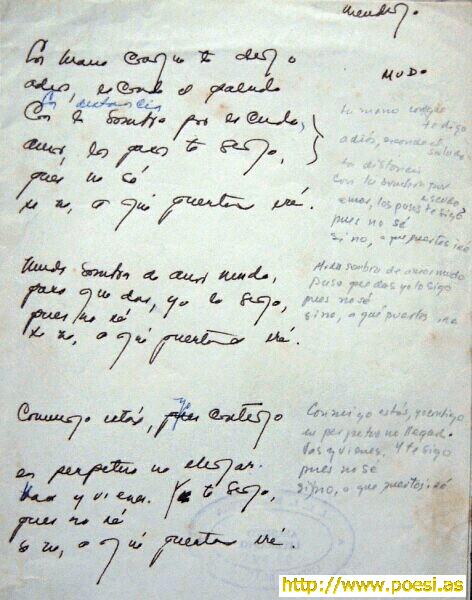 mendigo
MUDO
La mano conque te digo
adiós, esconde el saludo
tu distancia
Con tu sombra por escudo,
amor, los pasos te sigo,
pues no sé
si no, a qué puertas iré.
muda sombra de amor mudo,
paso que das, yo lo sigo,
pues no sé
si no, a qué puertas iré.
Conmigo estás, yo contigo
en perpetuo no llegar.
Vas y vienes. Y te sigo,
pues no sé
si no, a qué puertas iré.
tu mano conque
te digo
adiós, esconde el
saludo
tu distancia
con tu sombra por
escudo,
amor, los pasos te sigo
pues no sé
si no, a que puertas iré
Muda sombra de amor mudo
paso que das yo lo sigo
pues no sé
si no, a qué puertas iré
Conmigo estás, yo contigo
en perpetuo no llegar.
Vas y vienes. Y te sigo
pues no sé
si no, a que puertas iré
http://www.poesi.as